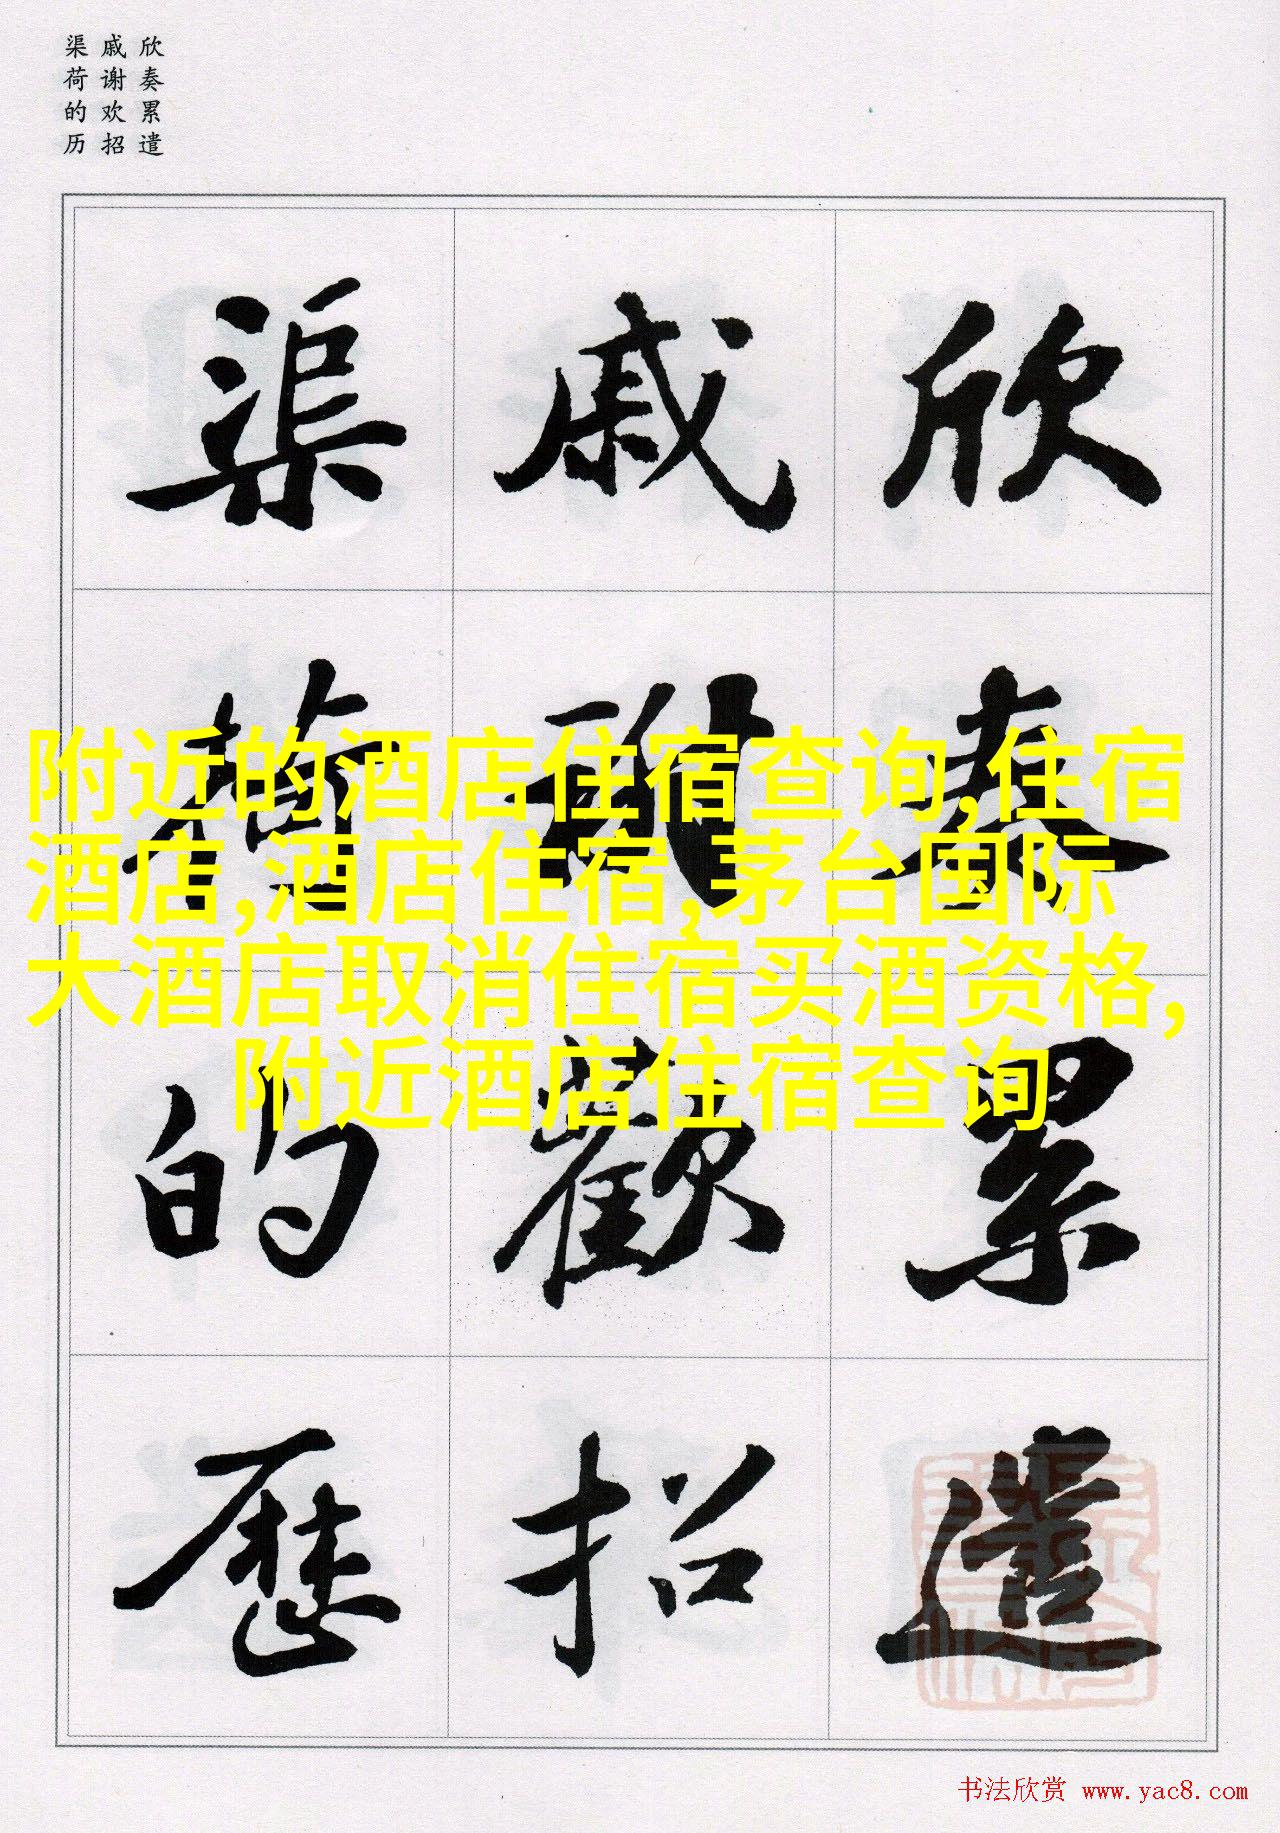 欣奏累遣
戚谢欢招
渠荷的历
欣奏累遣
戚謝歡招
渠荷的歷
附近的酒店住宿查询,住宿
酒店,酒店住宿,茅台国际
大酒店取消住宿买酒资格,
附近酒店住宿查询
书法欣赏 www.yac8.com